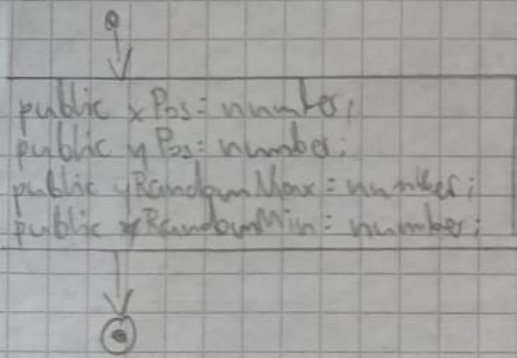 public xPos: number;
public yPos: number;
public yRandomMax: number;
public yRandomMin: number;